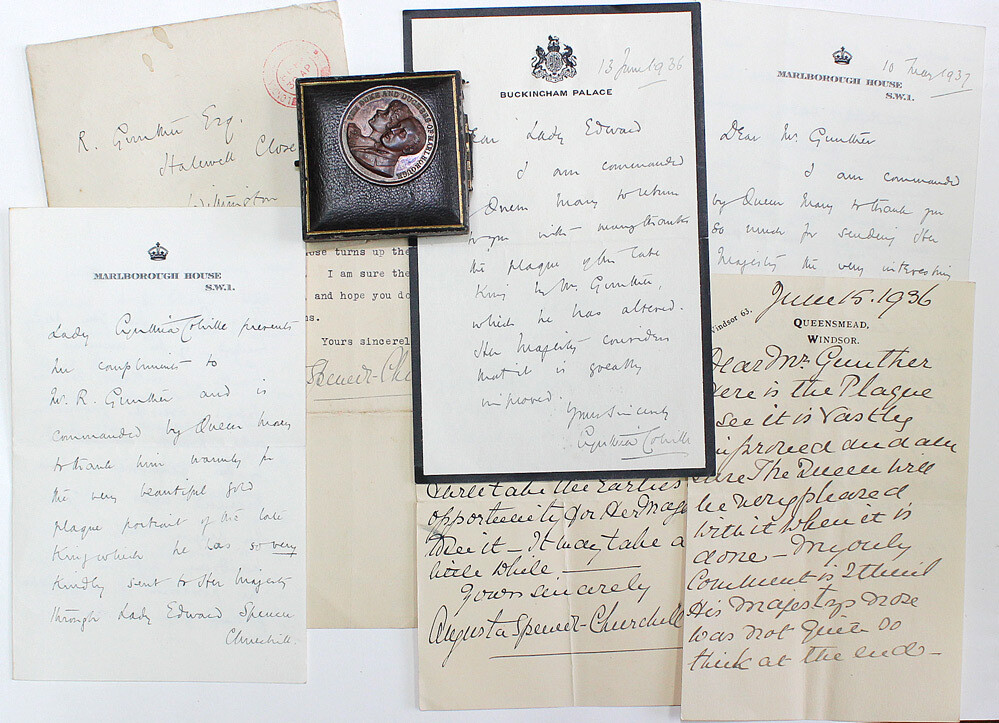 R. Gunther Esq.
Halewell Close
Withington
THE DUKE AND DUCHESS OF MARLBOROUGH
turns up the
I am sure the
and hope you do
Yours sincerel
Spencer-Chu
MARLBOROUGH HOUSE
S.W.1.
Lady Cynthia Colville presents
her compliments to
Mr. R. Gunther and is
commanded by Queen Mary
to thank him warmly for
the very beautiful gold
plaque portrait of the late
King which he has so very
kindly sent to Her Majesty
through Lady Edward Spencer
Churchill.
13 June 1936
BUCKINGHAM PALACE
Lady Edward
I am commanded
Queen Mary to return
to you with many thanks
the plaque of the late
King by Mr. Gunther,
which he has altered.
Her Majesty considers
that it is greatly
improved.
Yours sincerely
Cynthia Colville
take the Earliest
opportunity for Her Maje
see it – It may take a
little while
Yours sincerely
Augusta Spencer-Churchill
10 May 1937
MARLBOROUGH HOUSE
S.W.1.
Dear Mr Gunther
I am commanded
by Queen Mary to thank you
so much for sending Her
Majesty the very interesting
June 15. 1936
Windsor 63.
QUEENSMEAD,
WINDSOR.
Dear Mr. Gunther
Here is the Plaque
I see it is Vastly
improved and am
sure The Queen will
be very pleased
with it when it is
done – My only
Comment is I think
His Majestys nose
was not quite so
thick at the end –